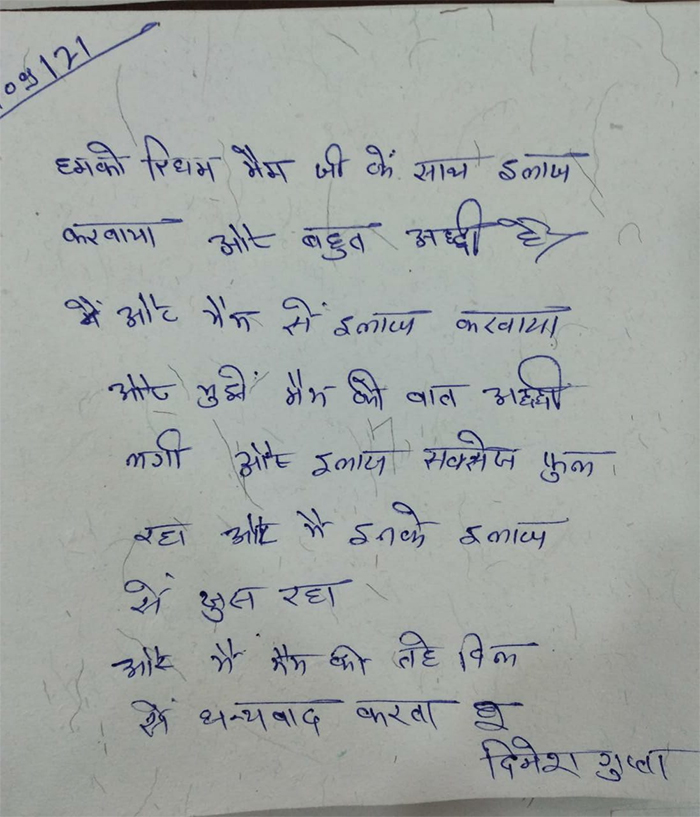 09/21
हमको रिधम मैम जी कें साथ इलाज
करवाया और बहुत अच्छी है
मैं और मैम सें इलाज करवाया
और मुझें मैम की बात अच्छी
लगी और इलाज सक्सेज फुल
रहा और मै इनके इलाज
सें खुस रहा
और मै मैम को तहे दिल
सें धन्यवाद करता हू
दिनेश गुप्ता